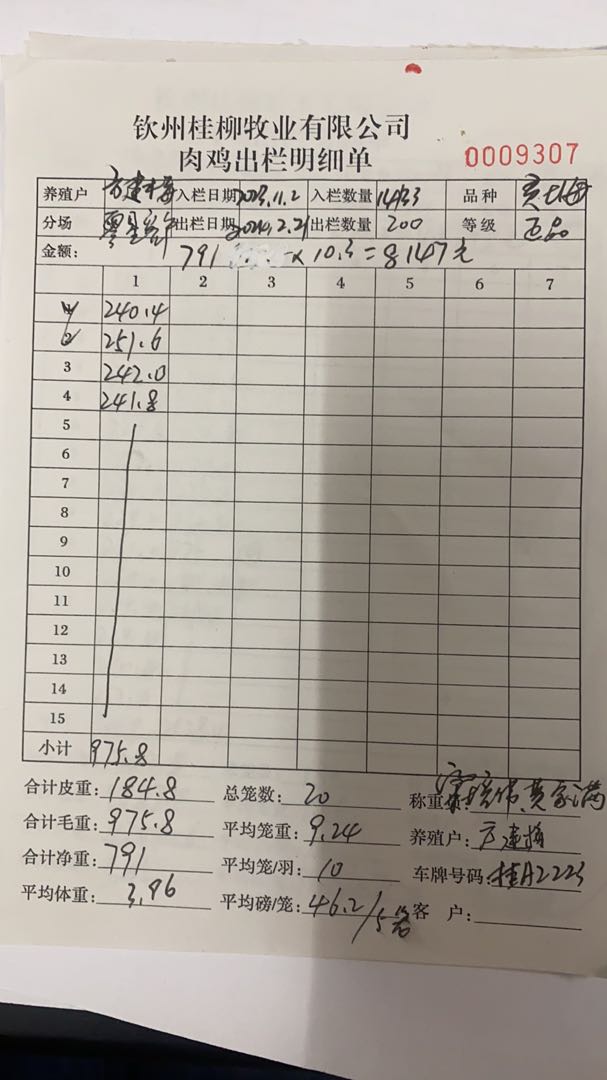 钦州桂柳牧业有限公司
肉鸡出栏明细单
0009307
养殖户 方建梅 入栏日期 2023.11.2 入栏数量 品种
分场 出栏日期 2024.2.21 出栏数量 200 等级 正品
金额: 791 × 10.3 = 8147元
1 2 3 4 5 6 7
1 240.4
2 251.6
3 242.0
4 241.8
5
6
7
8
9
10
11
12
13
14
15
小计 975.8
合计皮重: 184.8 总笼数: 20 称重员: 黄家满
合计毛重: 975.8 平均笼重: 9.24 养殖户: 方建梅
合计净重: 791 平均笼/羽: 10 车牌号码: 桂A2223
平均体重: 3.96 平均磅/笼: 46.2/5笼 客 户: